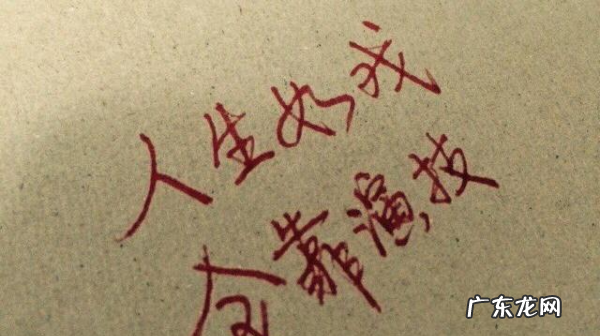 人生如戏
全靠演技
广东龙网